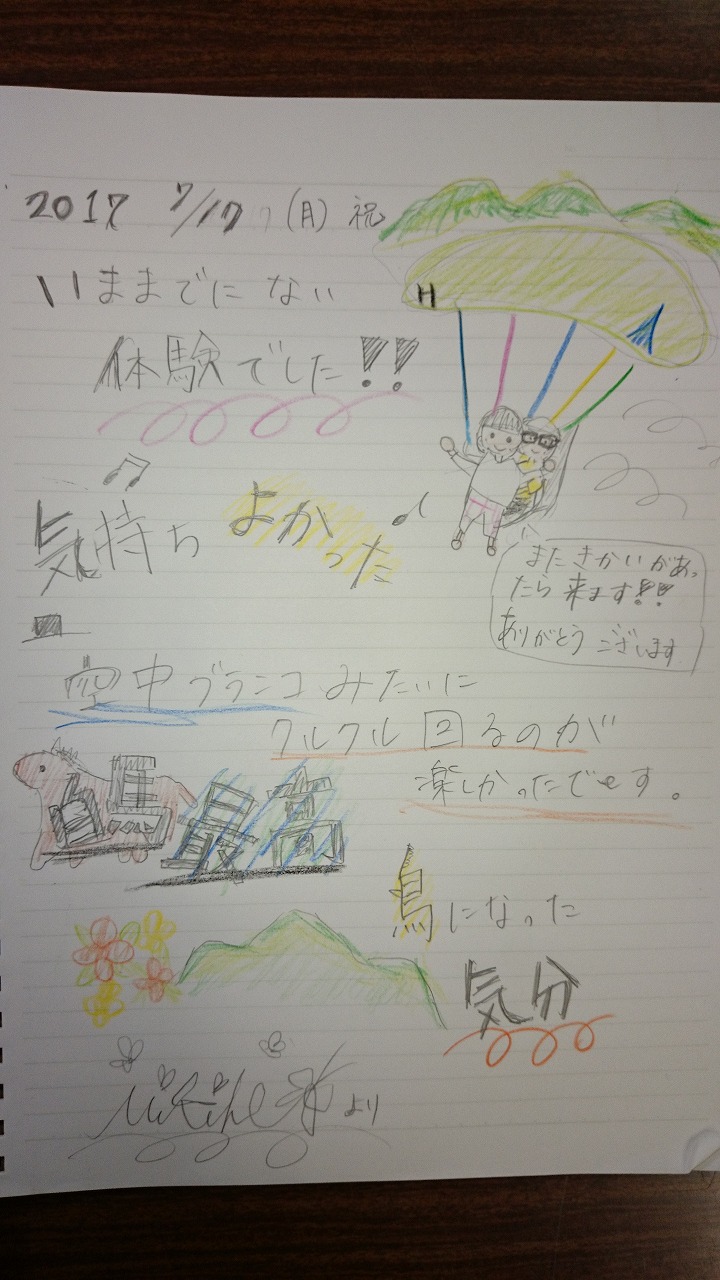 2017 7/17 (月) 祝
いままでにない
体験でした!!
H
気持ち よかった
またきかいがあっ
たら来ます!!
ありがとうございます
空中ブランコみたいに
クルクル回るのが
楽しかったでです。
最高
鳥になった
気分
より